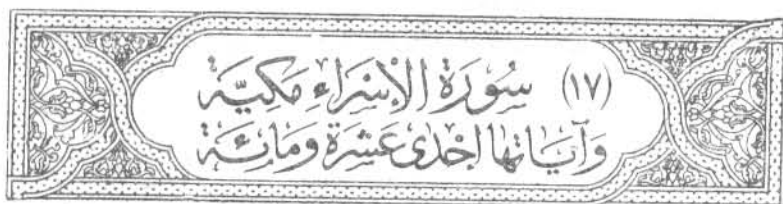 (١٧) سُورَة الإِسْرَاءِ مَكيَّة
وَآيَاتهَا احْدىٰ عَشرَة وَمَائَة